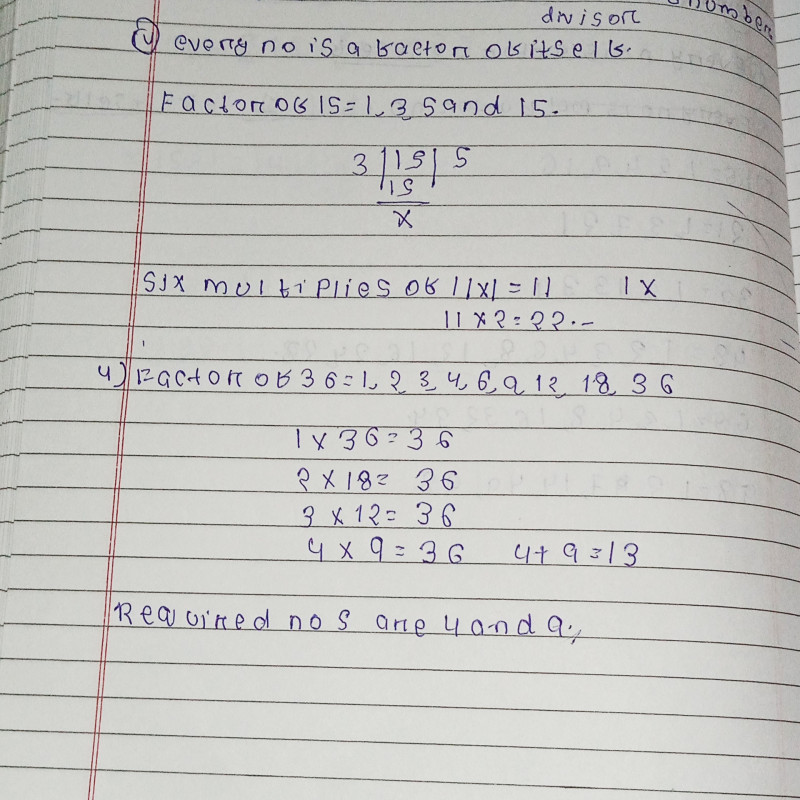 numbers
divisor
v) every no is a factor of itself.
Factor of 15 = 1, 3, 5 and 15.
3 | 15 | 5
15
x
Six multiplies of 11x1 = 11 1 x
11 x 2 = 22.-
4) Factor of 36 = 1, 2, 3, 4, 6, 9, 12, 18, 36
1 x 36 = 36
2 x 18 = 36
3 x 12 = 36
4 x 9 = 36 4 + 9 = 13
Required nos are 4 and 9.